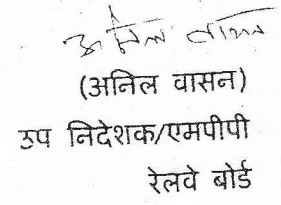 अनिल वासन
(अनिल वासन)
उप निदेशक/एमपीपी
रेलवे बोर्ड